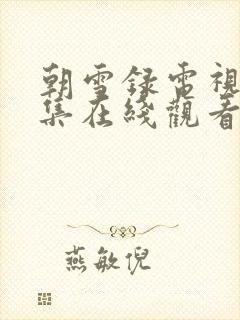 朝雪録電視
集在綫觀看
燕敏倪